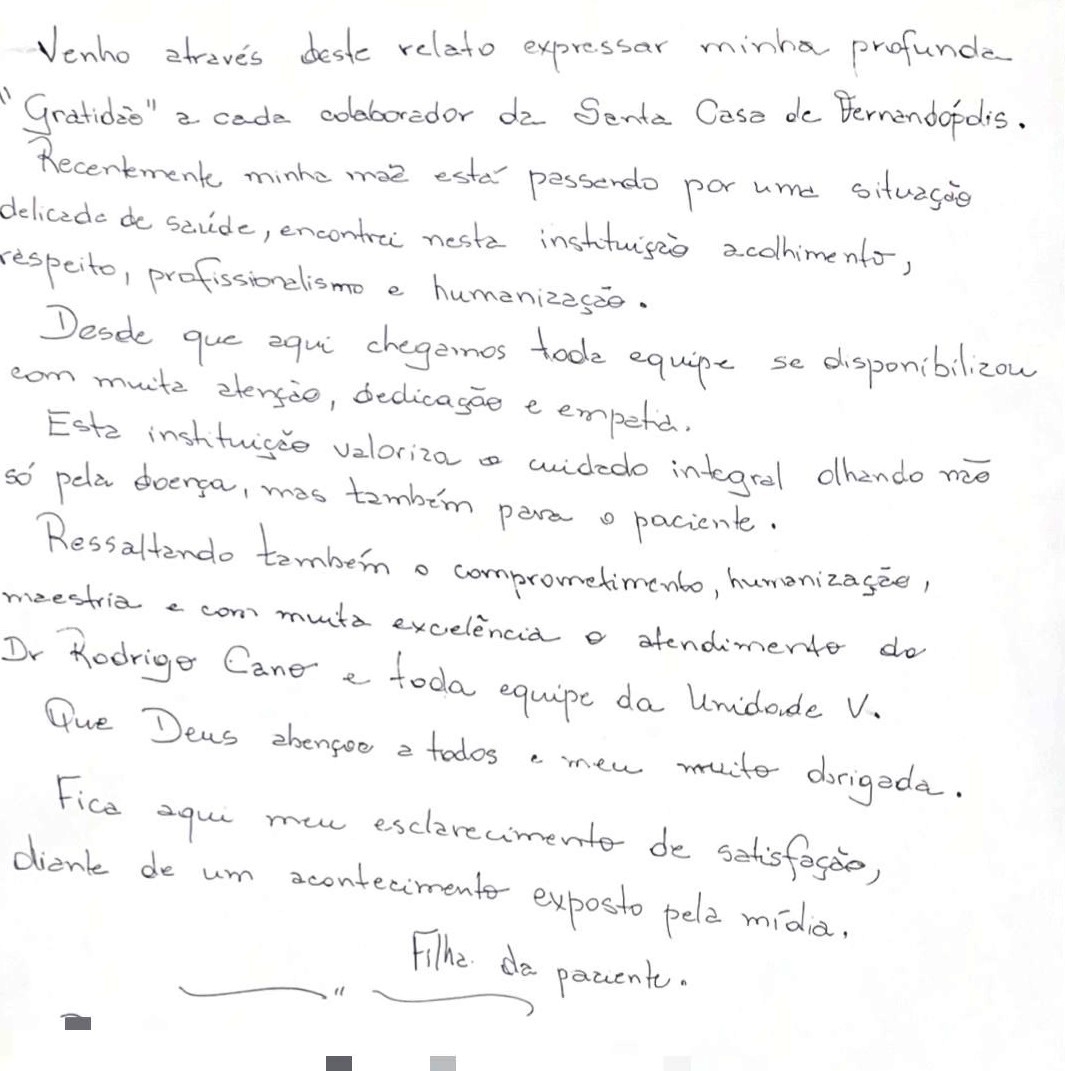 Venho através deste relato expressar minha profunda
"Gratidão" a cada colaborador da Santa Casa de Fernandópolis.
Recentemente minha mãe está passando por uma situação
delicada de saúde, encontrei nesta instituição acolhimento,
respeito, profissionalismo e humanização.
Desde que aqui chegamos toda equipe se disponibilizou
com muita atenção, dedicação e empatia.
Esta instituição valoriza o cuidado integral olhando não
só pela doença, mas também para o paciente.
Ressaltando também o comprometimento, humanização,
maestria e com muita excelência o atendimento do
Dr Rodrigo Cano e toda equipe da Unidade V.
Que Deus abençoe a todos e meu muito obrigada.
Fica aqui meu esclarecimento de satisfação,
diante de um acontecimento exposto pela mídia.
Filha da paciente.